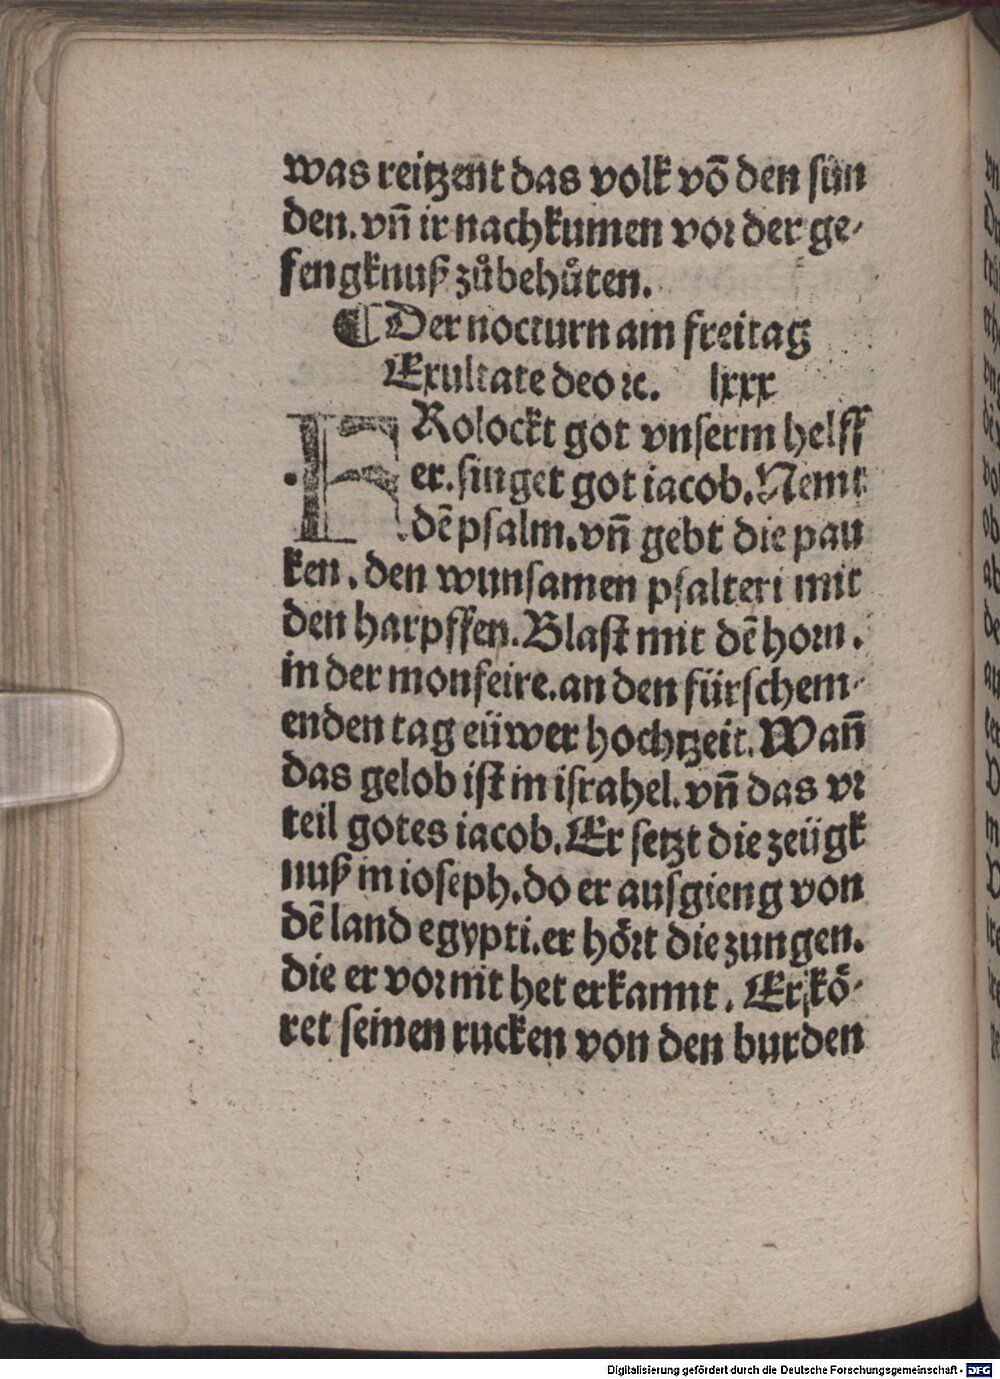 was reitzent das volk võ den sün
den. vñ ir nachkumen vor der ge-
fengknuß zůbehůten.
¶ Der nocturn am freitag
Exultate deo ꝛc. lxxx
FRolockt got vnserm helff
er. singet got iacob. Nemt
dẽ psalm. vñ gebt die pau
ken. den wunsamen psalteri mit
den harpffen. Blast mit dẽ horn.
in der monfeire. an den fürschem-
enden tag eüwer hochtzeit. Wañ
das gelob ist in israhel. vñ das vr
teil gotes iacob. Er setzt die zeügk
nuß in ioseph. do er ausgieng von
dẽ land egypti. er hört die zungen.
die er vor nit het erkannt. Er kö-
ret seinen rucken von den burden
Digitalisierung gefördert durch die Deutsche Forschungsgemeinschaft - DFG